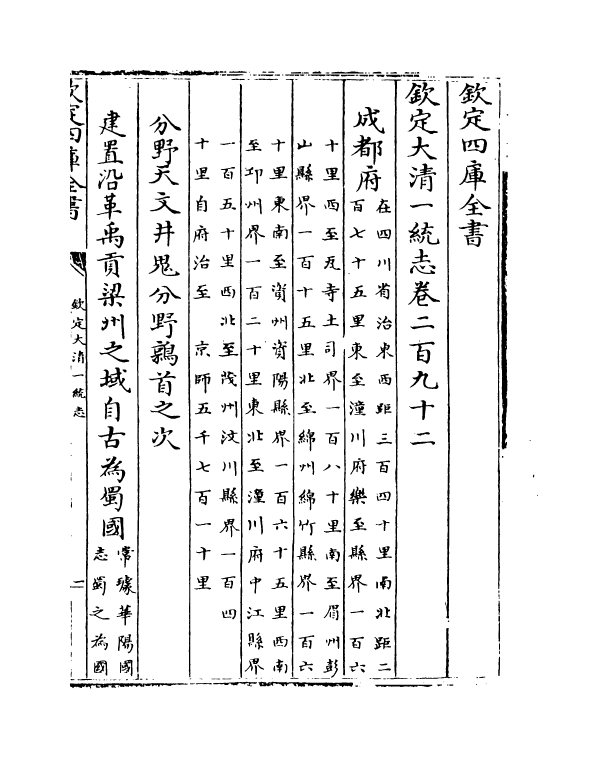 欽定四庫全書
欽定大清一統志卷二百九十二
成都府
在四川省治東西距三百四十里南北距二
百七十五里東至潼川府樂至縣界一百六
十里西至瓦寺土司界一百八十里南至眉州彭
山縣界一百十五里北至綿州綿竹縣界一百六
十里東南至資州資陽縣界一百六十五里西南
至邛州界一百二十里東北至潼川府中江縣界
一百五十里西北至茂州汶川縣界一百四
十里自府治至 京師五千七百一十里
分野天文井鬼分野鶉首之次
建置沿革禹貢梁州之域自古為蜀國
常璩華陽國
志蜀之為國
欽定四庫全書
欽定大清一統志